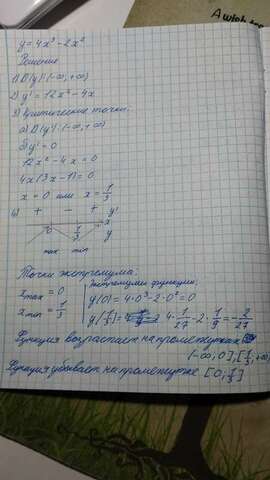 A wish too
y = 4x³ - 2x²
Решение
1) D(y): (-∞; +∞)
2) y' = 12x² - 4x
3) Критические точки:
а) D(y'): (-∞; +∞)
б) y' = 0
12x² - 4x = 0
4x(3x - 1) = 0
x = 0 или x = 1/3
+ - + y'
0 1/3 x
y
max min
Точки экстремума:
x max = 0
x min = 1/3
Экстремумы функции:
y(0) = 4·0³ - 2·0² = 0
y(1/3) = 4·1/27 - 2·1/9 = -2/27
Функция возрастает на промежутках
(-∞; 0], [1/3; +∞)
Функция убывает на промежутке [0; 1/3]